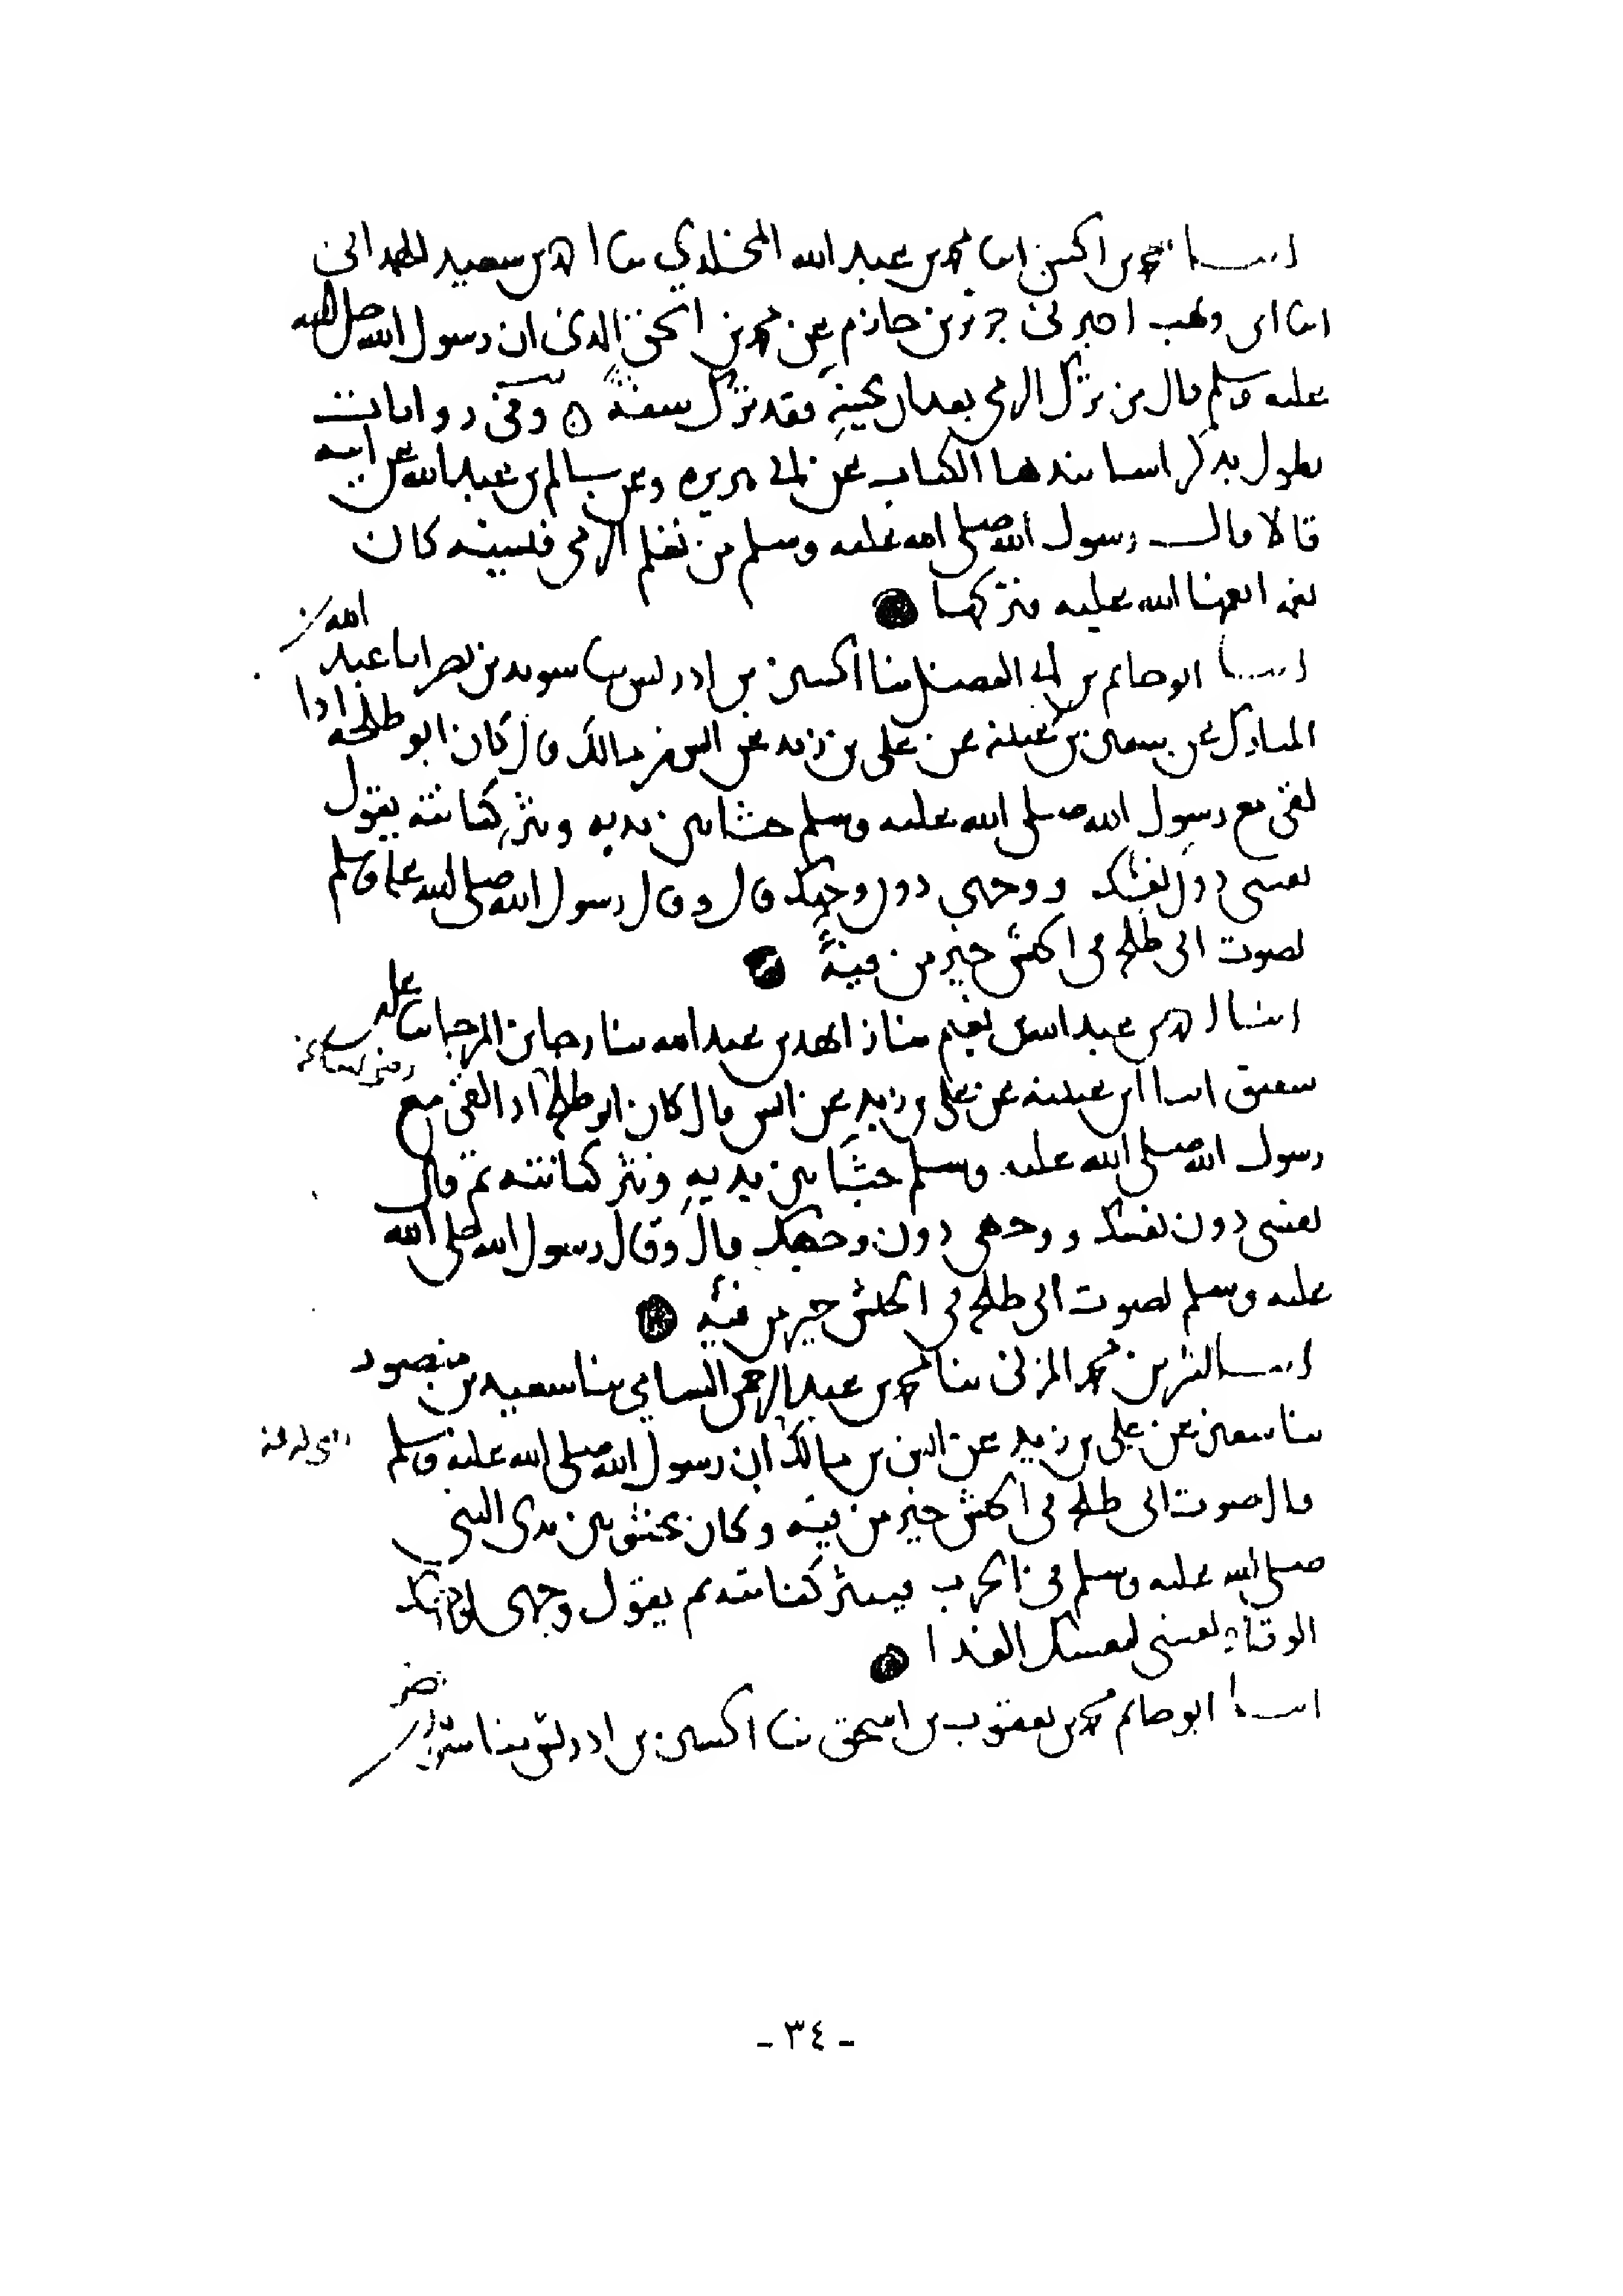 انبا محمد بن الحسن انبا محمد بن عبد الله المخلدي بنا احمد بن سعيد الهمداني
انبا ابن وهب اخبرني جرير بن حازم عن محمد بن اسحق المدني ان رسول الله صلى الله
عليه وسلم قال من ترك الرمي بعد ان يحسنه فقد ترك سنة ٥ وفي روايات
يطول بذكر اسانيدها الكتاب عن ابي هريره وعن سالم بن عبد الله عن ابيه
قالا قال رسول الله صلى الله عليه وسلم من تعلم الرمي فنسيه كان
نعمه انعمها الله عليه فتركها
انبا ابو حاتم بن ابي الفضل بنا الحسين بن ادريس بنا سويد بن نصر انبا عبد الله بن
المبارك عن سفين بن عيينه عن علي بن زيد عن انس بن مالك قال كان ابو طلحه اذا
لقي مع رسول الله صلى الله عليه وسلم جثا بين يديه ونثر كنانته يقول
نفسي دون نفسك ووجهي دون وجهك قال وقال رسول الله صلى الله عليه وسلم
لصوت ابي طلحه في الجيش خير من فئة
انبا احمد بن عبد الله بن نعيم بنا زاهد بن عبد الله بنا رجا بن المرجا بنا علي بن
شقيق انبا ابن عيينه عن علي بن زيد عن انس قال كان ابو طلحه اذا لقي مع
رسول الله صلى الله عليه وسلم جثا بين يديه ونثر كنانته ثم قال
نفسي دون نفسك ووجهي دون وجهك قال وقال رسول الله صلى الله
عليه وسلم لصوت ابي طلحه في الجيش خير من فئه
انبا بشر بن محمد المزني بنا محمد بن عبد الرحمن السامي بنا سعيد بن منصور
بنا سفين عن علي بن زيد عن انس بن مالك ان رسول الله صلى الله عليه وسلم
قال صوت ابي طلحه في الجيش خير من فئه وكان يجثو بين يدي النبي
صلى الله عليه وسلم في الحرب فينثر كنانته ثم يقول وجهي لوجهك
الوقاء ونفسي لنفسك الفدا
انبا ابو حاتم محمد بن يعقوب بن اسحق بنا الحسين بن ادريس بنا سويد بن نصر
- ٣٤ -